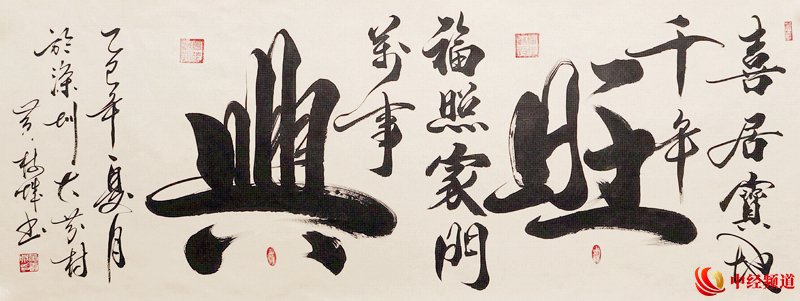 喜居寶地
千年
旺
福照家門
萬事
興
乙巳年夏月
於深圳大芬村
黄
書
中经频道